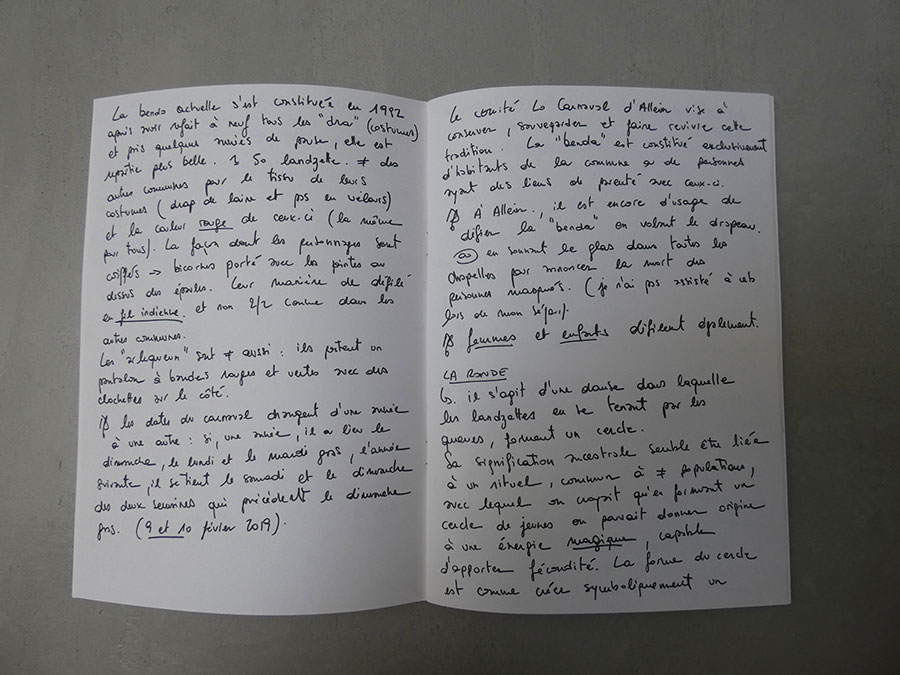 La benda actuelle s'est constituée en 1982
après avoir refait à neuf tous les "dra" (costumes)
et pris quelques années de pause, elle est
repartie plus belle. 50 landzette. ≠ des
autres communes par le tissu de leurs
costumes (drap de laine et pas en velours)
et la couleur rouge de ceux-ci (la même
pour tous). La façon dont les personnages sont
coiffés → bicornes porté avec les pointes au
dessus des épaules. Leur manière de défilé
en fil indienne, et non 2/2 comme dans les
autres communes.
Les "arlequeun" sont ≠ aussi : ils portent un
pantalon à bandes rouges et vertes avec des
clochettes sur le côté.
les dates du carnaval changent d'une année
à une autre : si, une année, il a lieu le
dimanche, le lundi et le mardi gras, l'année
suivante, il se tient le samedi et le dimanche
des deux semaines qui précèdent le dimanche
gras. (9 et 10 février 2019).
Le comité Lo Carnaval d'Allein vise à
conserver, sauvegarder et faire revivre cette
tradition. La "benda" est constitué exclusivement
d'habitants de la commune ou de personnes
ayant des liens de parenté avec ceux-ci.
À Allein, il est encore d'usage de
défier la "benda" en volant le drapeau.
en sonnant le glas dans toutes les
chapelles pour annoncer la mort des
personnes masqués. (je n'ai pas assisté à cela
lors de mon séjour).
femmes et enfants défilent également.
LA RONDE
↳ il s'agit d'une danse dans laquelle
les landzettes en se tenant par les
queues, forment un cercle.
Sa signification ancestrale semble être liée
à un rituel, commun à ≠ populations,
avec lequel on croyait qu'en formant un
cercle de jeunes on pouvait donner origine
à une énergie magique, capable
d'apporter fécondité. La forme du cercle
est comme créée symboliquement un